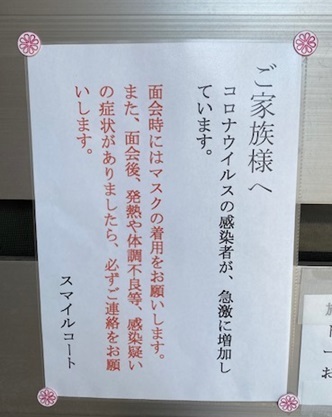 ご家族様へ
コロナウイルスの感染者が、急激に増加し
ています。
面会時にはマスクの着用をお願いします。
また、面会後、発熱や体調不良等、感染疑い
の症状がありましたら、必ずご連絡をお願
いします。
スマイルコート